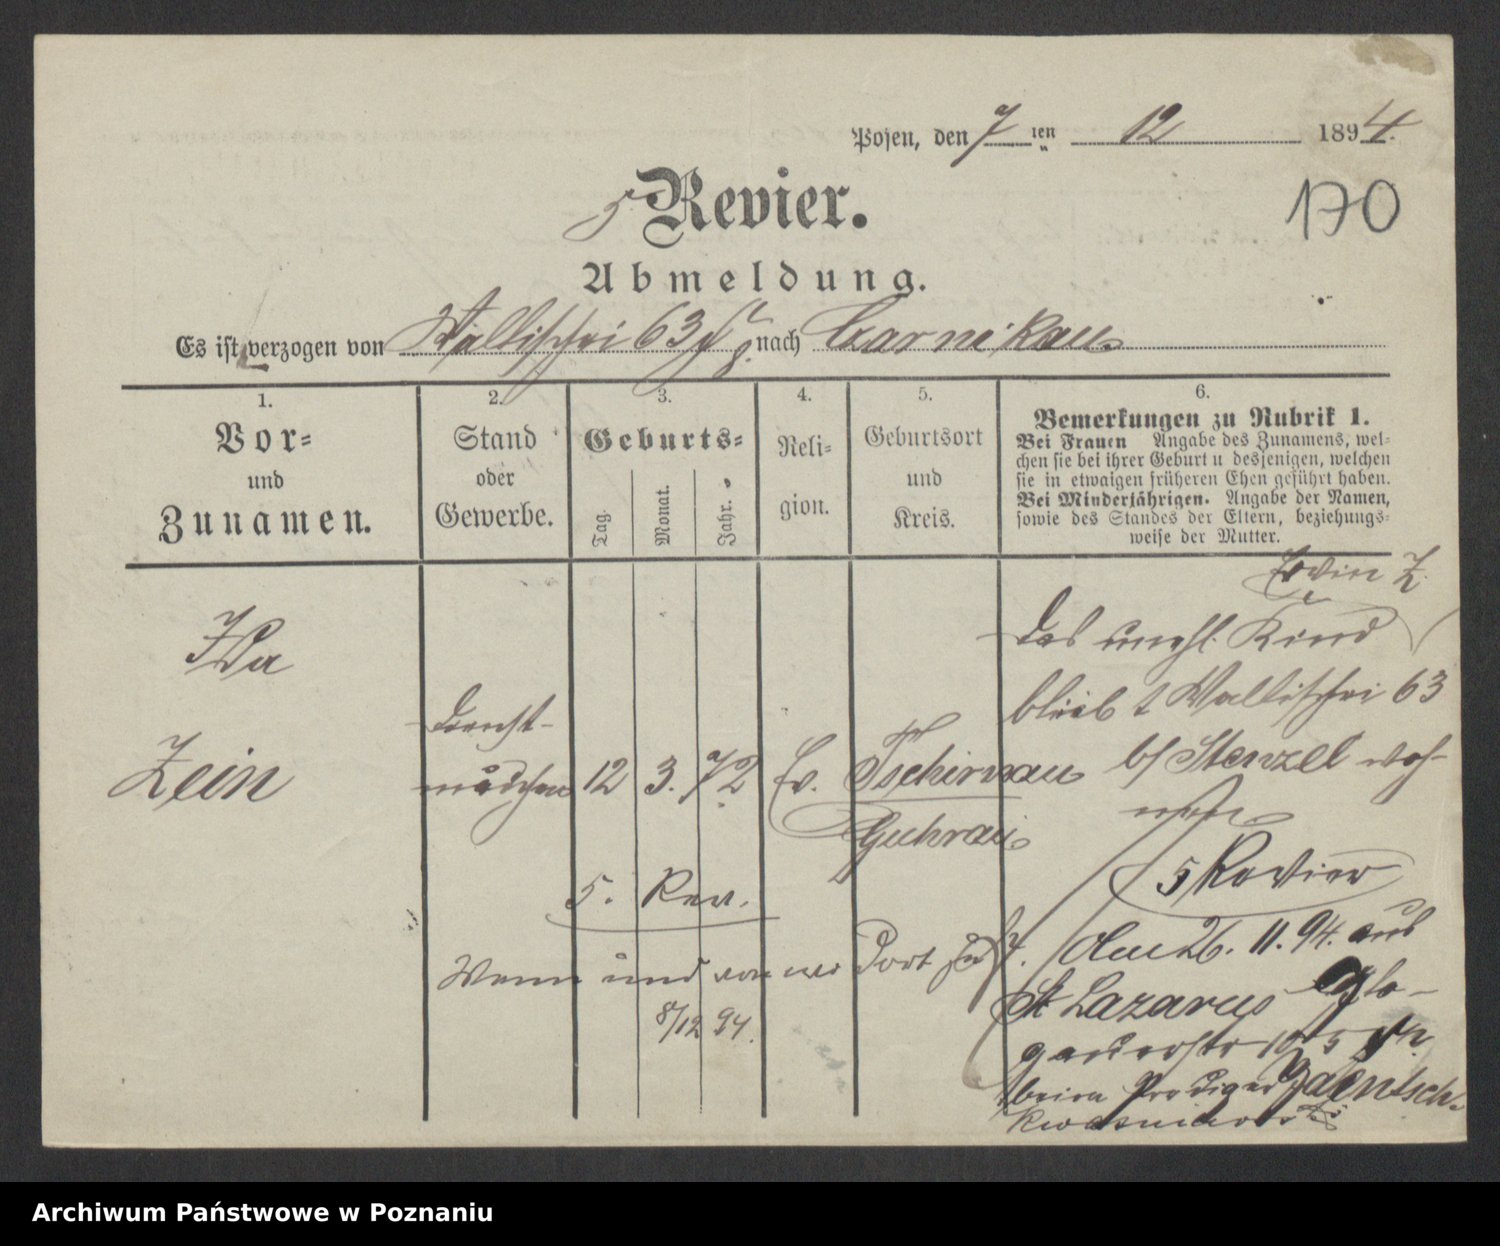 Posen, den 7 ten 12 1894.
170
5 Revier.
Abmeldung.
Es ist verzogen von Wallischei 63 nach Czarnikau.
1.
Vor-
und
Zunamen.
2.
Stand
oder
Gewerbe.
3.
Geburts-
Tag.
Monat.
Jahr.
4.
Reli-
gion.
5.
Geburtsort
und
Kreis.
6.
Bemerkungen zu Rubrik 1.
Bei Frauen Angabe des Zunamens, wel-
chen sie bei ihrer Geburt u desjenigen, welchen
sie in etwaigen früheren Ehen geführt haben.
Bei Minderjährigen. Angabe der Namen,
sowie des Standes der Eltern, beziehungs-
weise der Mutter.
Ida
Zein
Dienst-
mädchen
12 3. 72
Ev.
Tschirnau
Guhrau
Erwin Z.
Das unehl. Kind
bleibt Wallischei 63
b/ Stenzel woh-
nen
5 Revier
5. Rev.
Wann und von wo dort
8/12 94.
Am 26. 11. 94. aus
St Lazarus Glo-
gauerstr
beim Prediger Jaentsch